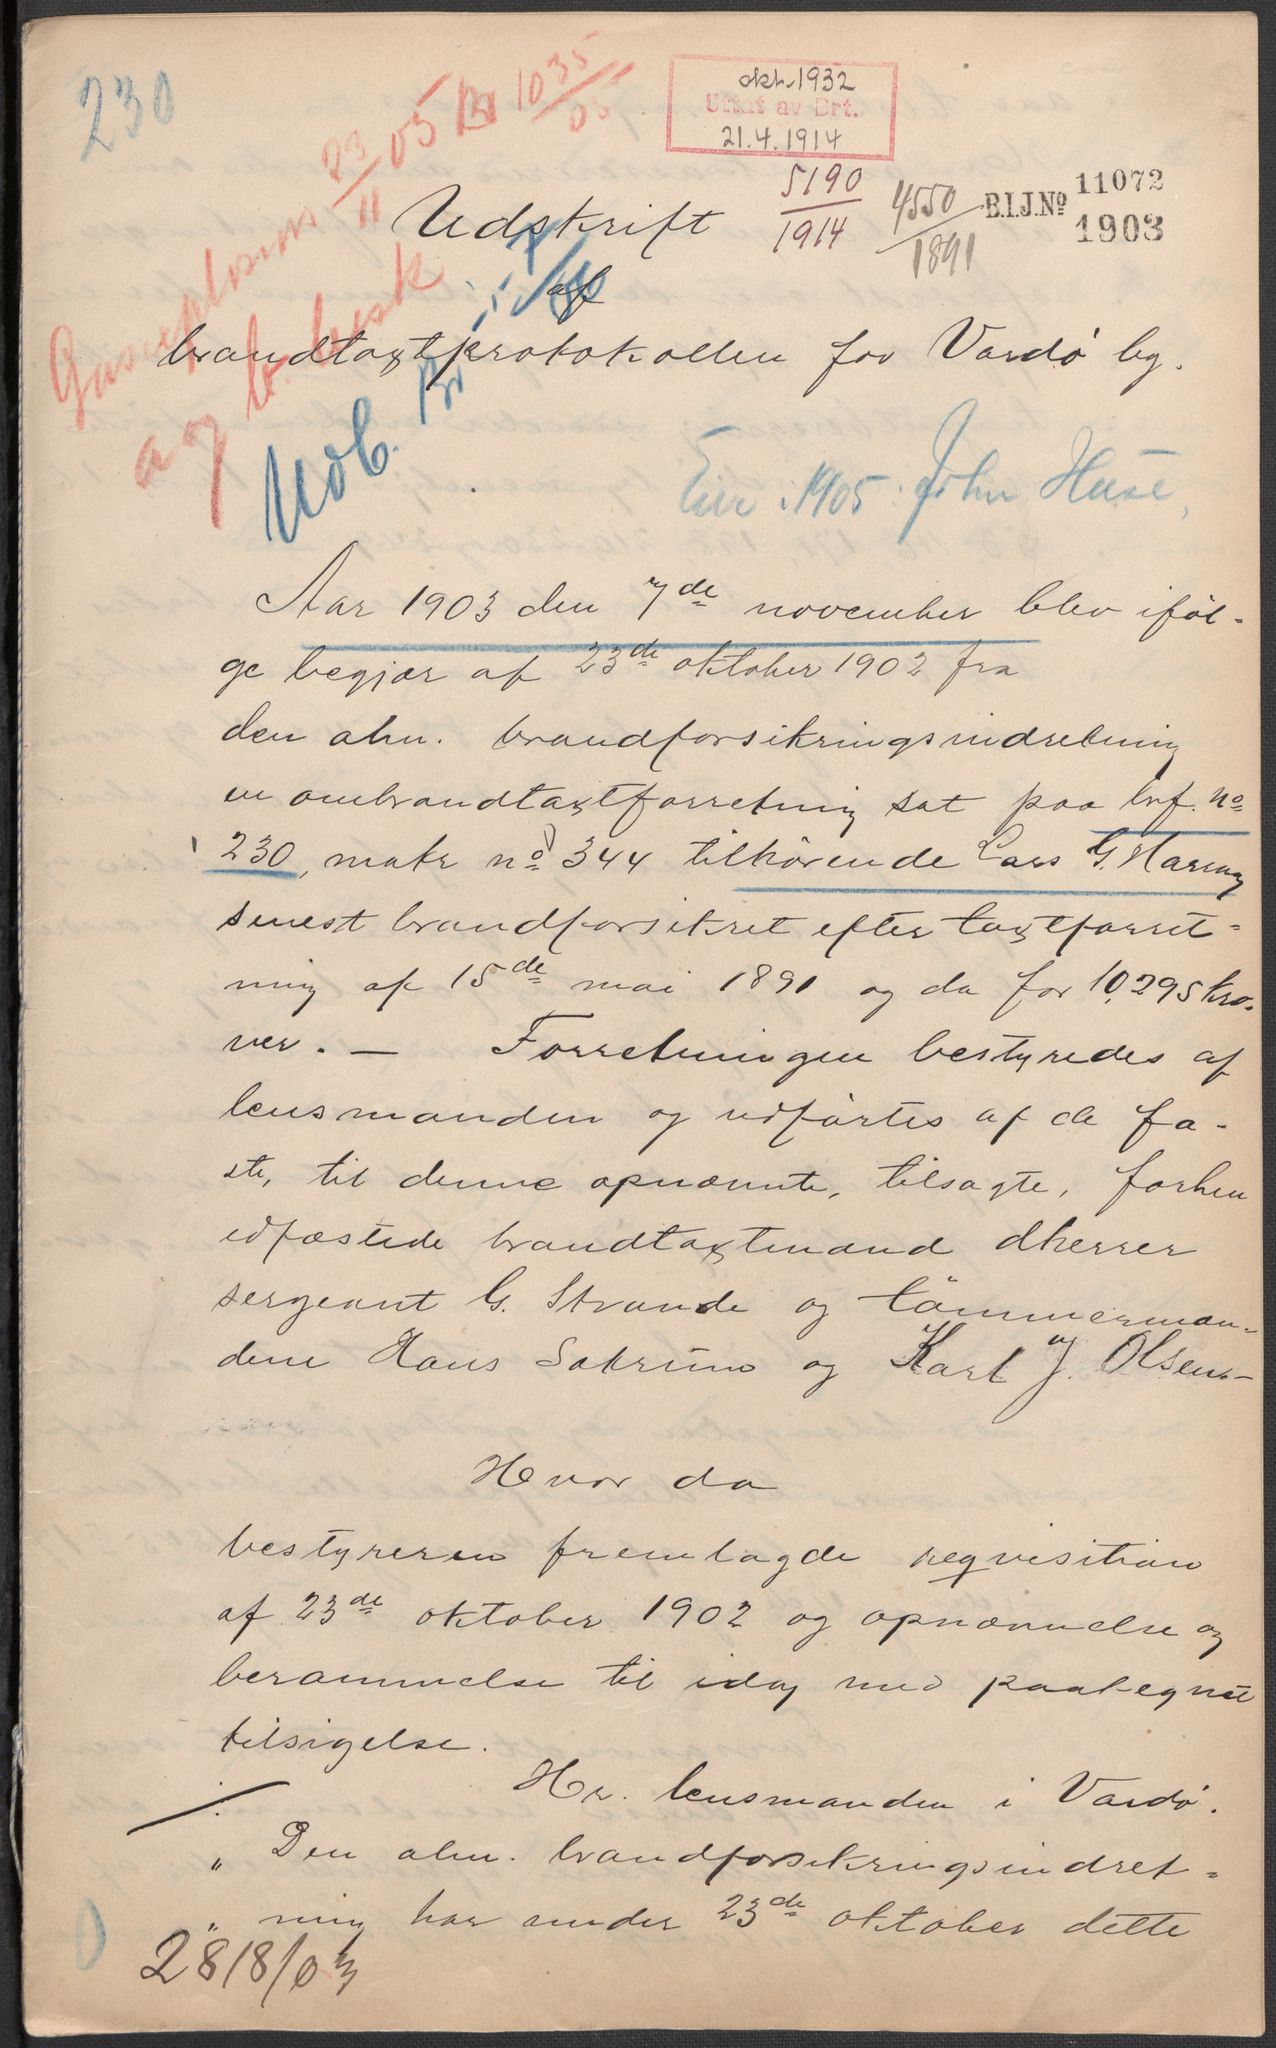 230
Gasexplosion 23/11 05 Br 1035/05
a og b. besk
okt. 1932
Utlaf av Drt.
21.4.1914
5190/1914
4550/1891
B.I.J.No 11072
1903
Udskrift
af
brandtaxtprotokollen for Vardø by.
Mob. Br
Eier i 1905: John Huse,
Aar 1903 den 7de november blev iføl-
ge begjær af 23de oktober 1902 fra
den alm. brandforsikringsindretning
en ombrandtaxtforretning sat paa brf. no
230, matr no 344 tilhørende Lars G.
senest brandforsikret efter taxtforret-
ning af 15de mai 1891 og da for 10,295 kro-
ner. — Forretningen bestyredes af
lensmanden og udførtes af de fa-
ste, til denne opnævnte, tilsagte, forhen
edfæstede brandtaxtmænd dherrer
sergeant G. Strande og tömmermæn-
dene Hans og Karl J. Olsen.—
Hvor da
bestyreren fremlagde reqvisition
af 23de oktober 1902 og opnævnelse og
berammelse til idag med paategnet
tilsigelse.
Hr. lensmanden i Vardø.
./.
„ Den alm. brandforsikringsindret-
„ ning har under 23de oktober dette
2818/03